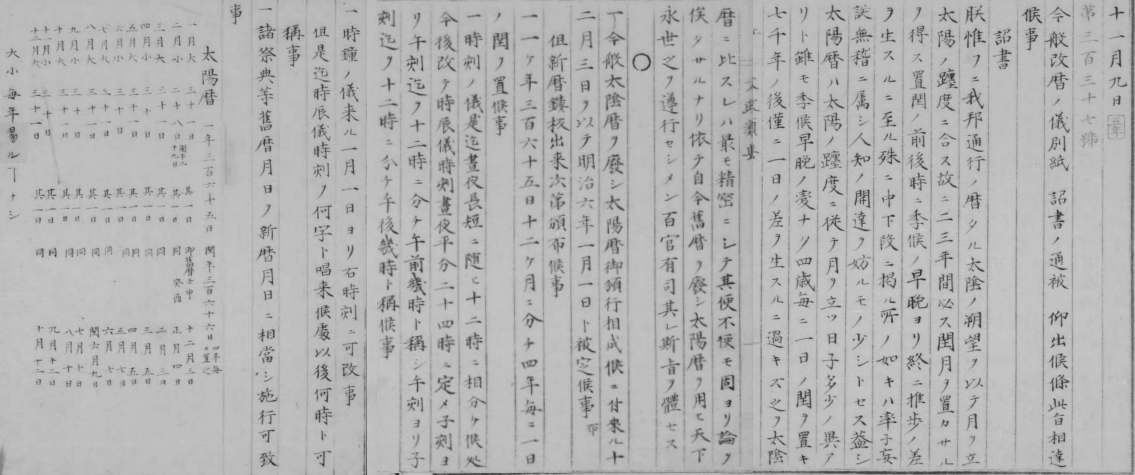 十一月九日 五年
第三百三十七號
今般改暦ノ儀別紙　詔書ノ通被　仰出候條此旨相達
候事
詔書
朕惟フニ我邦通行ノ暦タル太陰ノ朔望ヲ以テ月ヲ立
太陽ノ躔度ニ合ス故ニ二三年間必ス閏月ヲ置カサル
ヲ得ス置閏ノ前後時ニ季候ノ早晩アリ終ニ推歩ノ差
ヲ生スルニ至ル殊ニ中下段ニ掲ル所ノ如キハ率子妄
誕無稽ニ属シ人知ノ開達ヲ妨ルモノ少シトセス蓋シ
太陽暦ハ太陽ノ躔度ニ從テ月ヲ立ツ日子多少ノ異ア
リト雖モ季候早晩ノ變ナク四歳毎ニ一日ノ閏ヲ置キ
七千年ノ後僅ニ一日ノ差ヲ生スルニ過キス之ヲ太陰
暦ニ比スレハ最モ精密ニシテ其便不便モ固ヨリ論ヲ
俟タサルナリ依テ自今舊暦ヲ廢シ太陽暦ヲ用ヒ天下
永世之ヲ遵行セシメン百官有司其レ斯旨ヲ體セス
〇
一今般太陰暦ヲ廢シ太陽暦御頒行相成候ニ付来ル十
二月三日ヲ以テ明治六年一月一日ト被定候事
但新暦鏤板出来次第頒布候事
一一ヶ年三百六十五日十二ヶ月ニ分チ四年毎ニ一日
ノ閏ヲ置候事
一時刻ノ儀是迄晝夜長短ニ随ヒ十二時ニ相分ケ候処
今後改テ時辰儀時刻晝夜平分二十四時ニ定メ子刻ヨ
リ午刻迄ヲ十二時ニ分チ午前幾時ト稱シ午刻ヨリ子
刻迄ヲ十二時ニ分チ午後幾時ト稱候事
一時鐘ノ儀来ル一月一日ヨリ右時刻ニ可改事
但是迄時辰儀時刻ヲ何字ト唱来候處以後何時ト可
稱事
一諸祭典等舊暦月日ヲ新暦月日ニ相當シ施行可致
事
太陽暦　一年三百六十五日　閏年三百六十六日 四年毎ニ置之
一月大　三十一日　其一日　即舊暦壬申　十二月三日
二月小　二十八日 閏年二十九日　其一日　同癸酉　正月四日
三月大　三十一日　其一日　同　二月三日
四月小　三十日　其一日　同　三月五日
五月大　三十一日　其一日　同　四月五日
六月小　三十日　其一日　同　五月七日
七月大　三十一日　其一日　同　六月七日
八月大　三十一日　其一日　同　閏六月九日
九月小　三十日　其一日　同　七月十日
十月大　三十一日　其一日　同　八月十日
十一月小　三十日　其一日　同　九月十二日
十二月大　三十一日　其一日　同　十月十二日
大小毎年替ルヿナシ